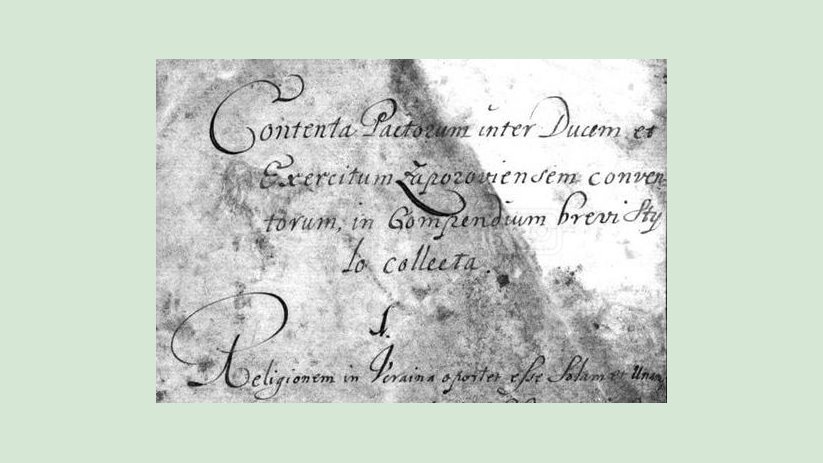 Contenta Pactorum inter Ducem et
Exercitum Zaporoviensem conven-
torum, in Compendium brevi Sty
lo collecta.
1.
Religionem in Ucraina oportet esse Solam et Unam